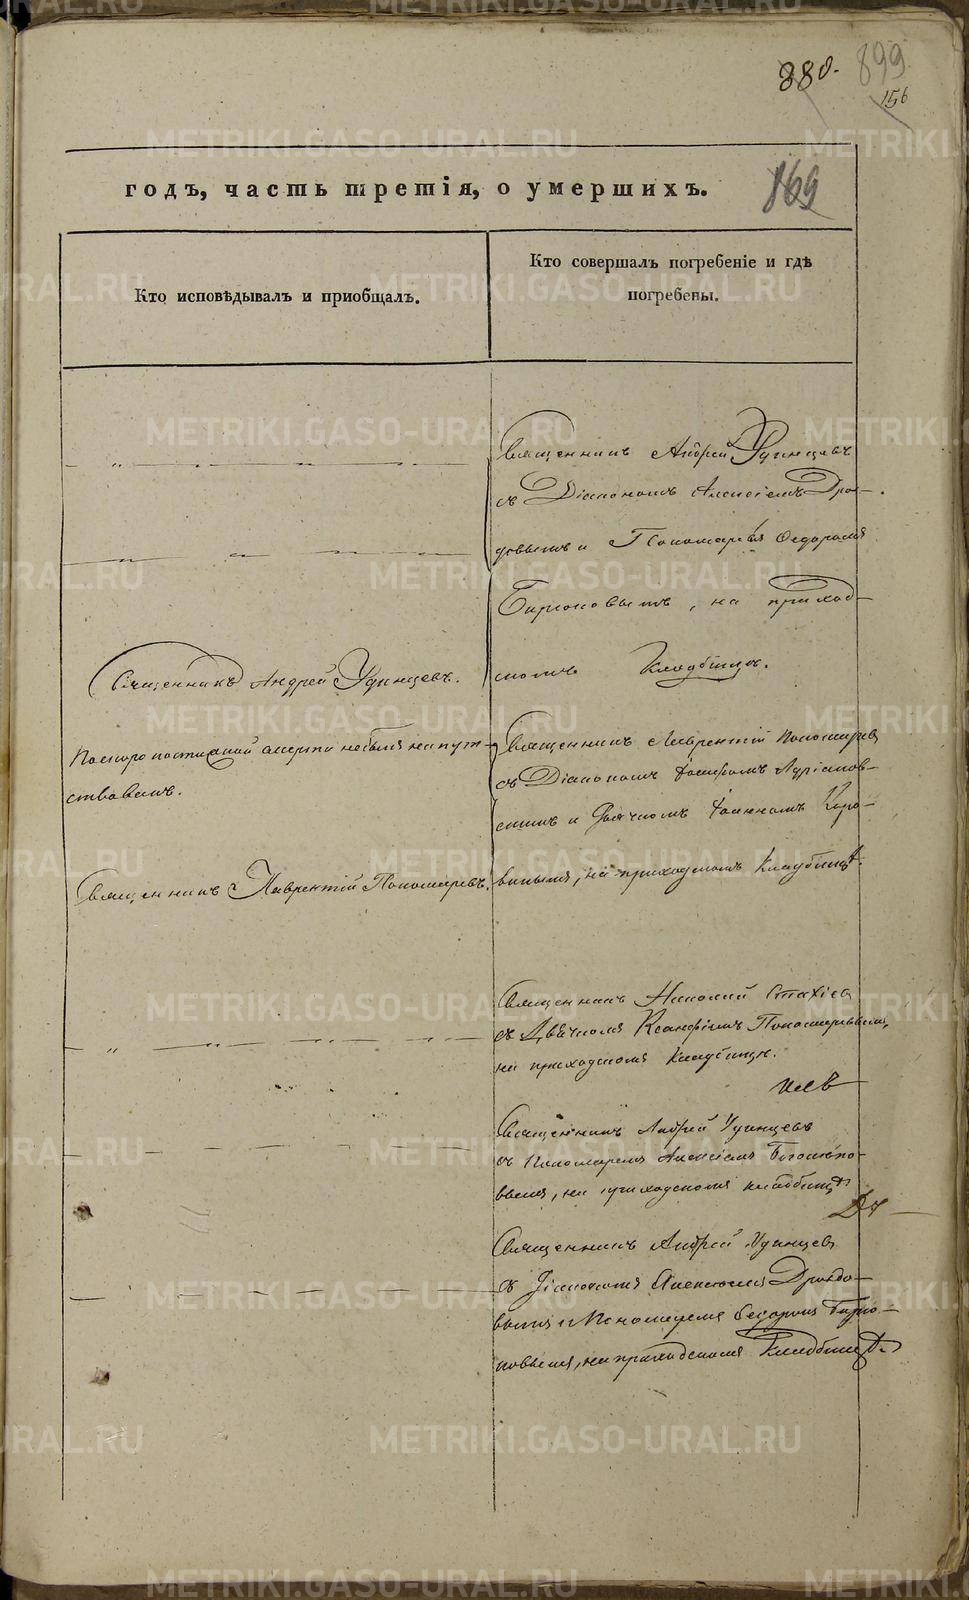 880.
899
156
годъ, часть третія, о умершихъ.
169
Кто исповѣдывалъ и приобщалъ.
Кто совершалъ погребеніе и гдѣ
погребены.
Священникъ Андрей Удинцевъ
съ Діакономъ Алексіемъ
и Пономаремъ Ѳедоромъ
на приход-
скомъ Кладбищѣ.
Священникъ Андрей Удинцевъ.
По скоропостижной смерти не былъ напут-
ствованъ.
Священникъ Лаврентій Пономаревъ
съ Діакономъ
и Дьячкомъ Іоанномъ
на приходскомъ Кладбищѣ.
Священникъ Лаврентій Пономаревъ.
Священникъ Николай Стахіев
съ Дьячкомъ Ксанфіемъ Пономаревымъ,
на приходскомъ Кладбищѣ.
Священникъ Андрей Удинцевъ
съ Пономаремъ Алексіемъ
на приходскомъ кладбищѣ
Священникъ Андрей Удинцевъ
съ Діакономъ Алексіемъ
и Пономаремъ Ѳедоромъ
на приходскомъ Кладбищѣ.
METRIKI.GASO-URAL.RU